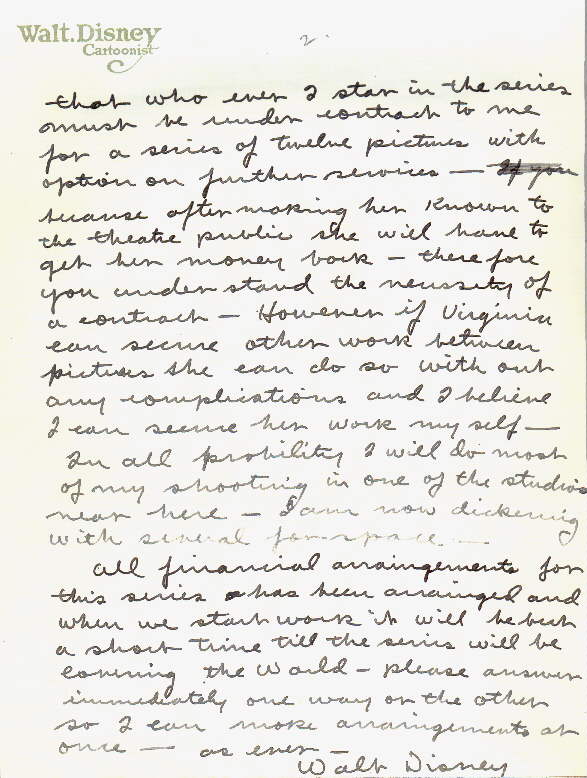 Walt. Disney
Cartoonist
2.
that who ever I star in the series
must be under contract to me
for a series of twelve pictures with
option on further services — If you
because after making her known to
the theatre public she will have to
get her money back – therefore
you understand the nessity of
a contract — However if Virginia
can secure other work between
pictures she can do so with out
any complications and I believe
I can secure her work my self —
In all probility I will do most
of my shooting in one of the studios
near here — I am now dickening
with several for space —
All financial arraingements for
this series has been arrainged and
when we start work it will be but
a short time till the series will be
covering the World – please answer
immediately one way or the other
so I can make arraingements at
once — as ever –
Walt Disney